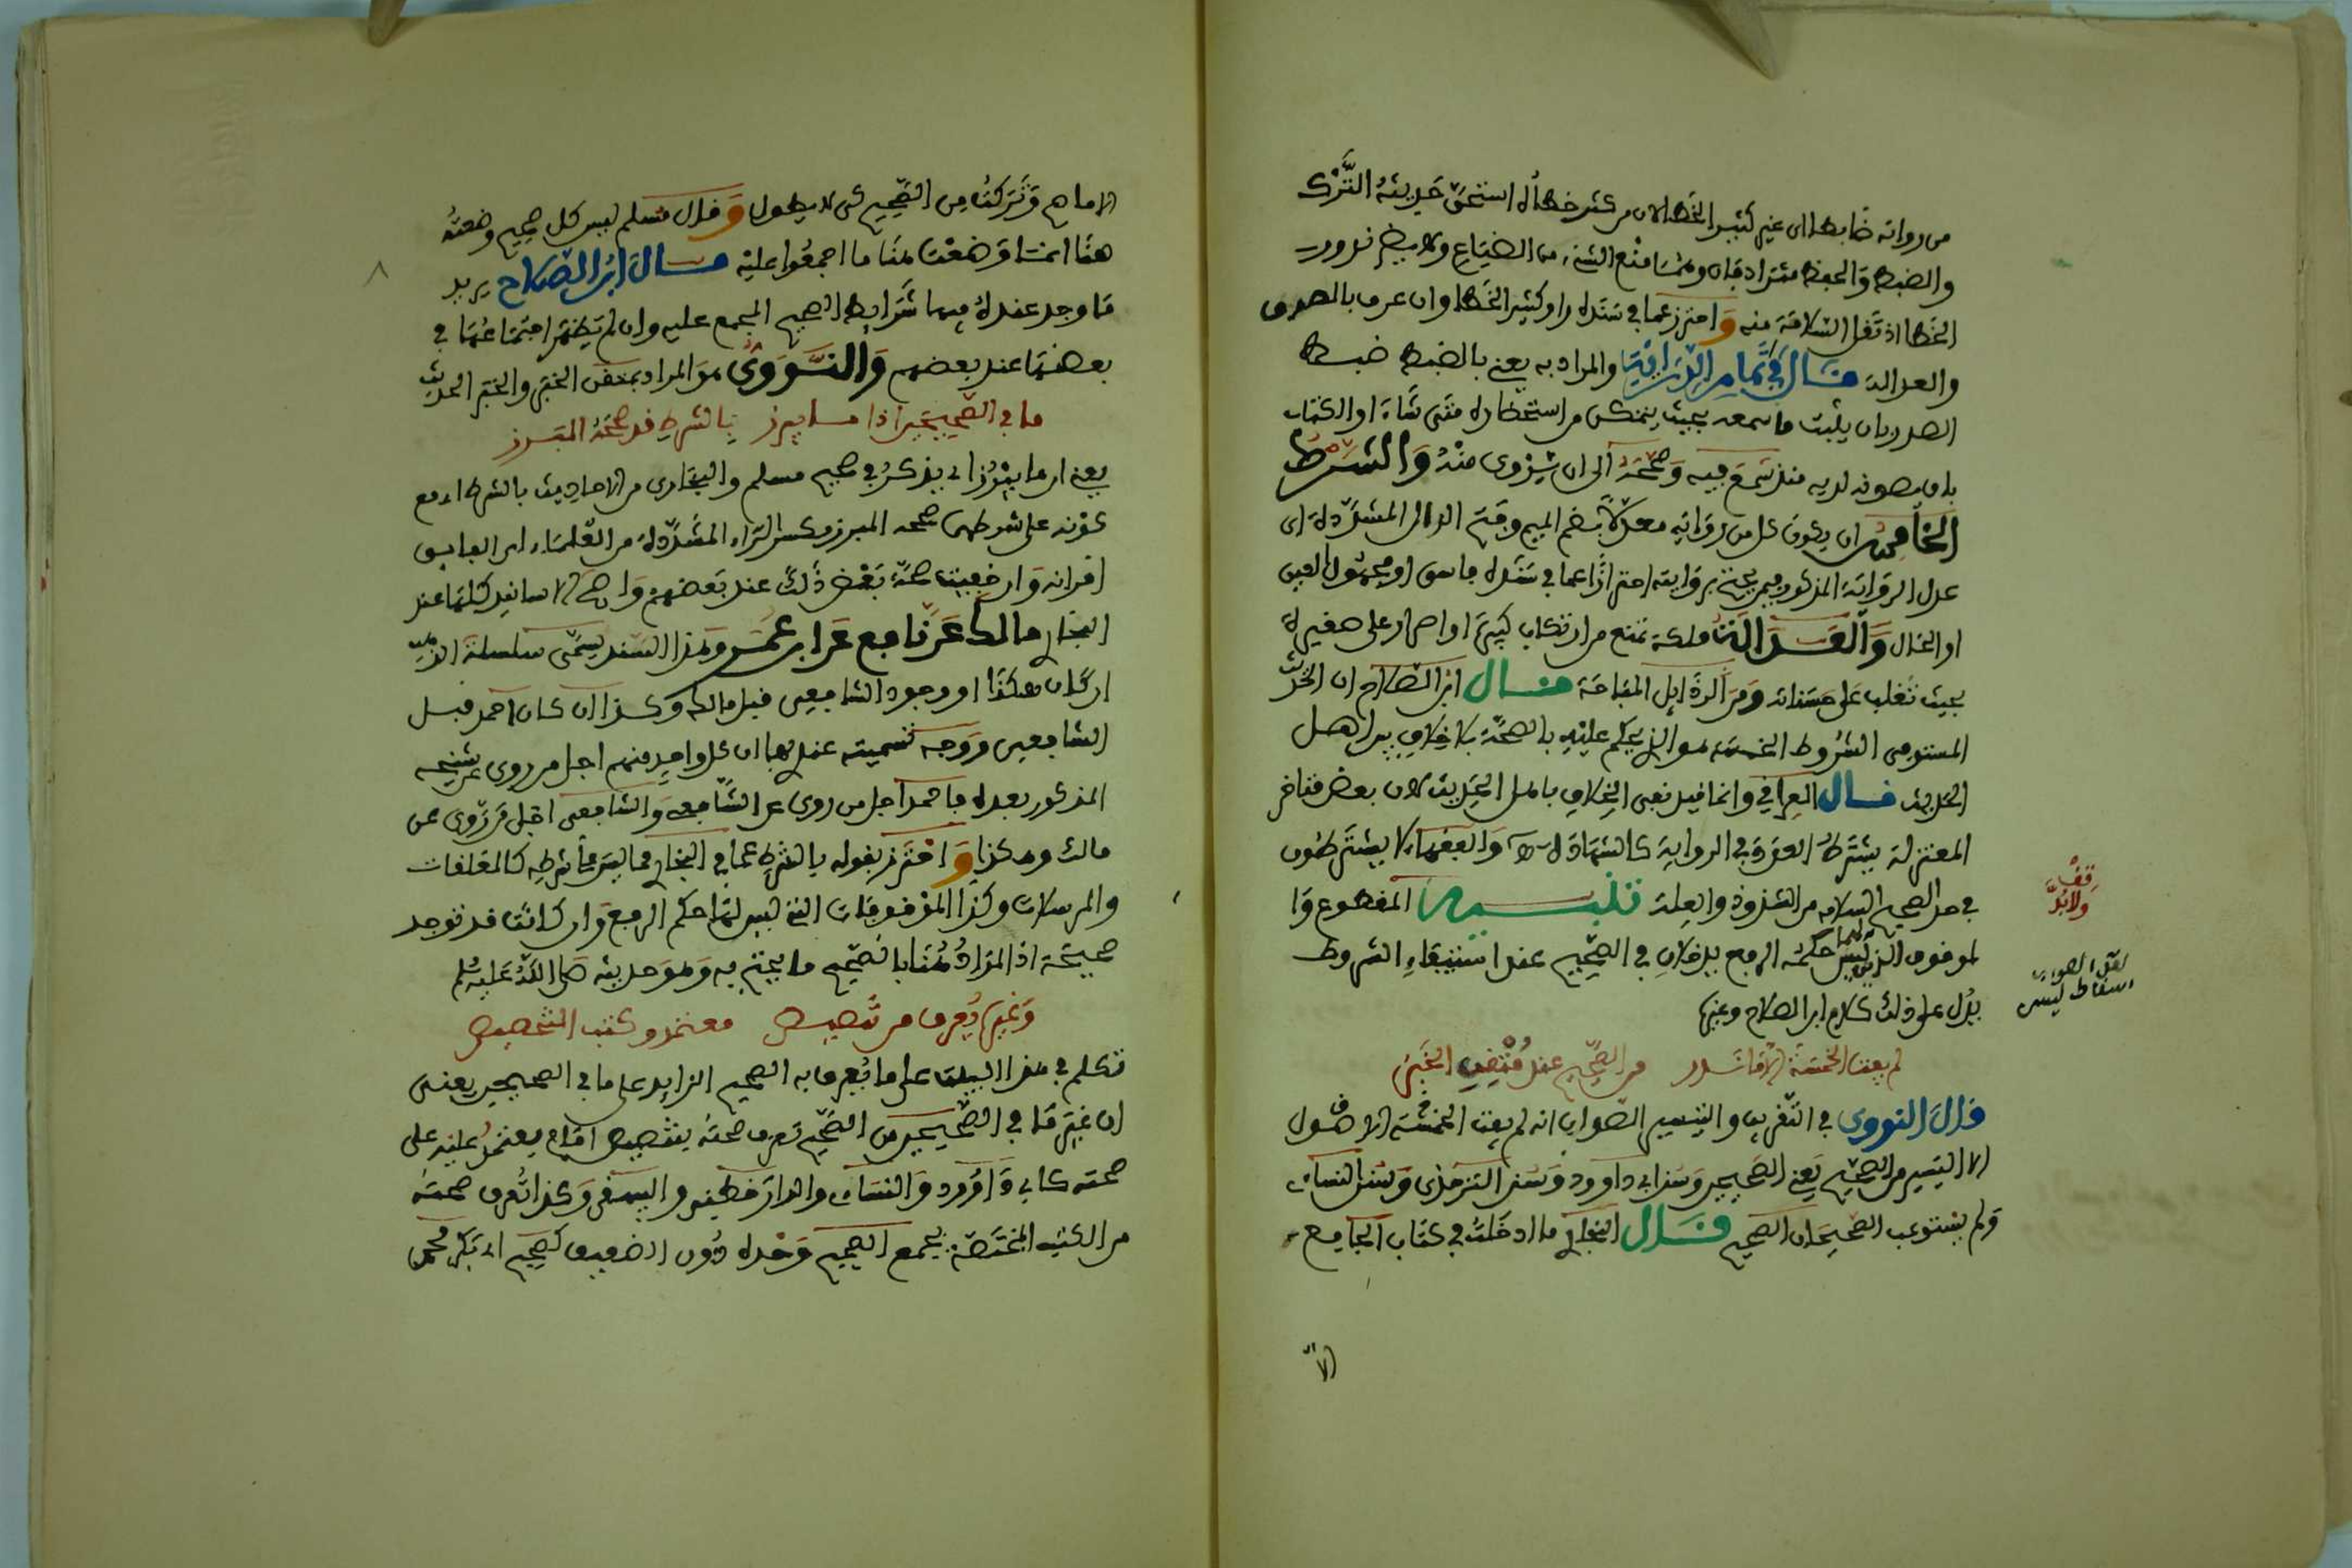 من رواته ضابطا اى غير كثير الخطا لان من كثر خطأه استحق حديثه التَّرْك
والضبط والحفظ مترادفان وهما منع الشىء من الضياع ولا يضر ندور
الخطا اذ تقل السلامة منه وَاحترز عما فى سنده راو كثير الخطا وان عرف بالصدق
والعدالة قال فى تمام الدراية والمراد به يعنى بالضبط ضبط
الصدر بان يثبت ما سمعه بحيث يتمكن من استحضاره متى شاء او الكتاب
بان يصونه لديه منذ سمع فيه وصححه الى ان يروى منه وَالشرط
الخامس ان يكون كل من رواته معدلا بضم الميم وفتح الدال المشددة اى
عدل الرواية المذكور فيمن يحتج بروايته احترازا عما فى سنده فاسق او مجهول العين
او الحال وَالعدالة ملكة تمنع من ارتكاب كبيرة او اصرار على صغيرة
بحيث تغلب على حسناته ومن الرذايل المباحة قال ابن الصلاح ان الحديث
المستوفى الشروط الخمسة هو الذى يحكم عليه بالصحة بلا خلاف بين اهل
الحديث قال العراقي وانما قيد نفى الخلاف باهل الحديث لان بعض متاخر
المعتزلة يشترط العدد فى الرواية كالشهادة وَالفقهاء لا يشترطون
فى حد الصحيح السلامه من الشذوذ والعلة تنبيه المقطوع وَا
لموقوف الذين ليس لهما حكم الرفع يدخلان فى الصحيح عند استيفاء الشروط
يدل على ذلك كلام ابن الصلاح وغيره
لم يفت الخمسة الا ما ندر من الصحيح عند مقتفى الخبر
قال النووى فى التقريب والتيسير الصواب انه لم يفت الخمسة الاصول
الا اليسير من الصحيح يعنى الصحيحين وسنن ابى داوود وسنن الترمذى وسنن النساءى
ولم يستوعب الصحيحان الصحيح قال البخارى ما ادخلت فى كتاب الجامع
قِفْ
ولابُدَّ
لعل الصواب
اسقاط ليس
الا
٨
الا ما صح وتركت من الصحيح كى لا يطول وَقال مسلم ليس كل صحيح وضعته
هنا انما وضعت هنا ما اجمعوا عليه قال ابن الصلاح يريد
ما وجد عنده فيها شرايط الصحيح المجمع عليه وان لم يظهر اجتماعها فى
بعضها عند بعضهم وَالنَّووى هو المراد بمقتفى الخبر والخبر الحديث
ما فى الصحيحين اذا ما يبرز بالشرط قد صححه المبرز
يعنى ان ما يبرز اى يذكر فى صحيح مسلم والبخارى من الاحاديث بالشرط اى مع
كونه على شرطهما صححه المبرز بكسر الراء المشددة من العلماء اى الفايق
اقرانه وان خفيت صحة بعض ذلك عند بعضهم وَاصح الاسانيد كلها عند
البخارى مالك عن نافع عن ابن عمر وهذا السند يسمى سلسلة الذهب
ان كان هكذا او وجود الشافعى قبل مالك وكذا ان كان احمد قبل
الشافعى ووجه تسميته عندهما ان كل واحد منهم اجل من روى عن شيخه
المذكور بعده فاحمد اجل من روى عن الشافعى وَالشافعى اجل من روى عن
مالك وهكذا وَاحترز بقوله بالشرط عما فى البخارى مما ليس على شرطه كالمعلقات
والمرسلات وكذا الموقوفات التى ليس لها حكم الرفع وَان كانت قد توجد
صحيحة اذ المراد هنا بالصحيح ما يحتج به وهو حديثه صلى الله عليه وسلم
وَغيره يعرف من تنصيص معتمد وكتب التخصيص
تكلم فى هذا البيت على ما يعرف به الصحيح الزايد على ما فى الصحيحين يعنى
ان غير ما فى الصحيحين من الصحيح تعرف صحته بتنصيص امام يعتمد عليه على
صحته كابى داوود والنساءى والدارقطنى والبيهقى وكذا تعرف صحته
من الكتب المختصة بجمع الصحيح وحده دون الضعيف كصحيح ابى بكر محمد